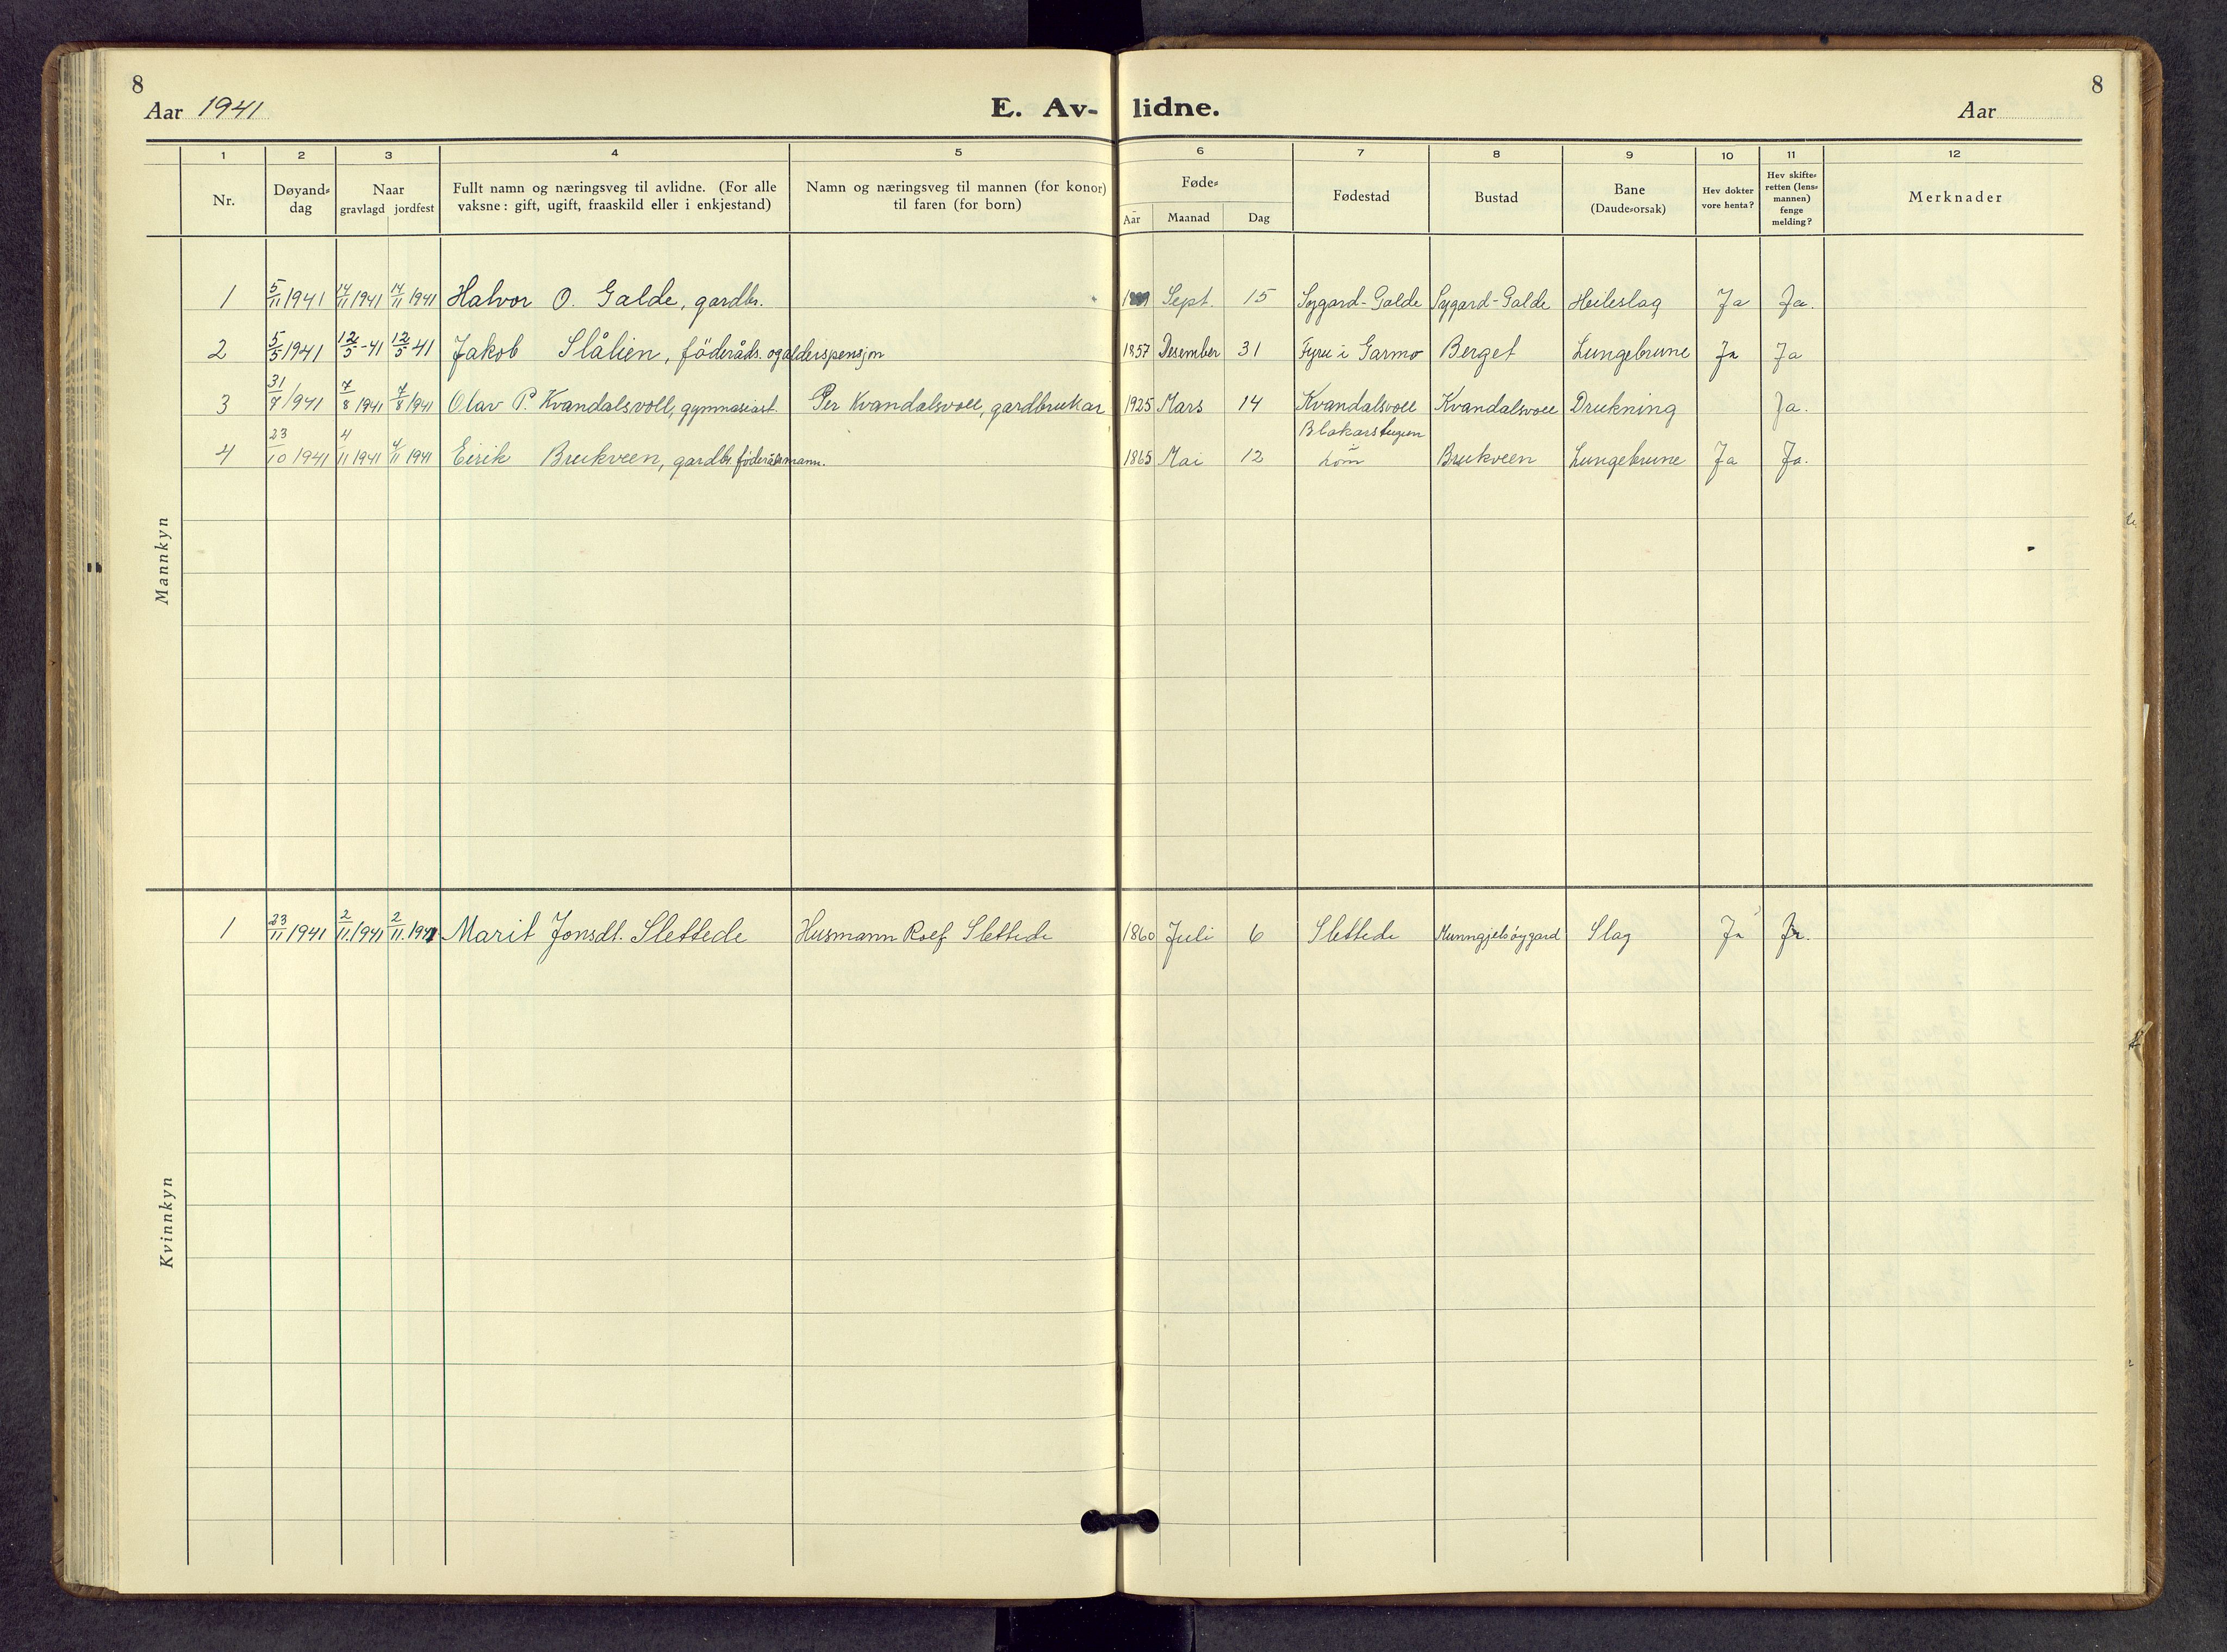 8
8
Aar 1941
E. Av- lidne.
Aar
1 2 3 4 5 6 7 8 9 10 11 12
Nr. Døyand-dag Naar gravlagd jordfest Fullt namn og næringsveg til avlidne. (For alle vaksne: gift, ugift, fraaskild eller i enkjestand) Namn og næringsveg til mannen (for konor) til faren (for born) Føde- Aar Maanad Dag Fødestad Bustad Bane (Daude-orsak) Hev dokter vore henta? Hev skifte-retten (lens-mannen) fenge melding? Merknader
Mannkyn
1 5/11 1941 14/11 1941 14/11 1941 Halvor O. Galde, gardbr. Sept. 15 Sygard-Galde Sygard-Galde Heileslag Ja Ja.
2 5/5 1941 12/5 -41 12/5 41 Jakob Slålien, föderåds. og alderspensjon 1857 Desember 31 Fyru i Garmo Berget Lungebrune Ja Ja
3 31/7 1941 7/8 1941 7/8 1941 Olav P. Kvandalsvoll, gymnasiast. Per Kvandalsvoll, gardbrukar 1925 Mars 14 Kvandalsvoll Kvandalsvoll Drukning Ja.
4 23/10 1941 4/11 1941 4/11 1941 Eirik Brukveen, gardbr. föderådsmann. 1865 Mai 12 Blakarstugun Lom Brukveen Lungebrune Ja Ja.
Kvinnkyn
1 23/11 1941 2/11. 1941 2/11. 1941 Marit Jonsdt. Slettede Husmann Rolf Slettede 1860 Juli 6 Slettede Slag Ja Ja.